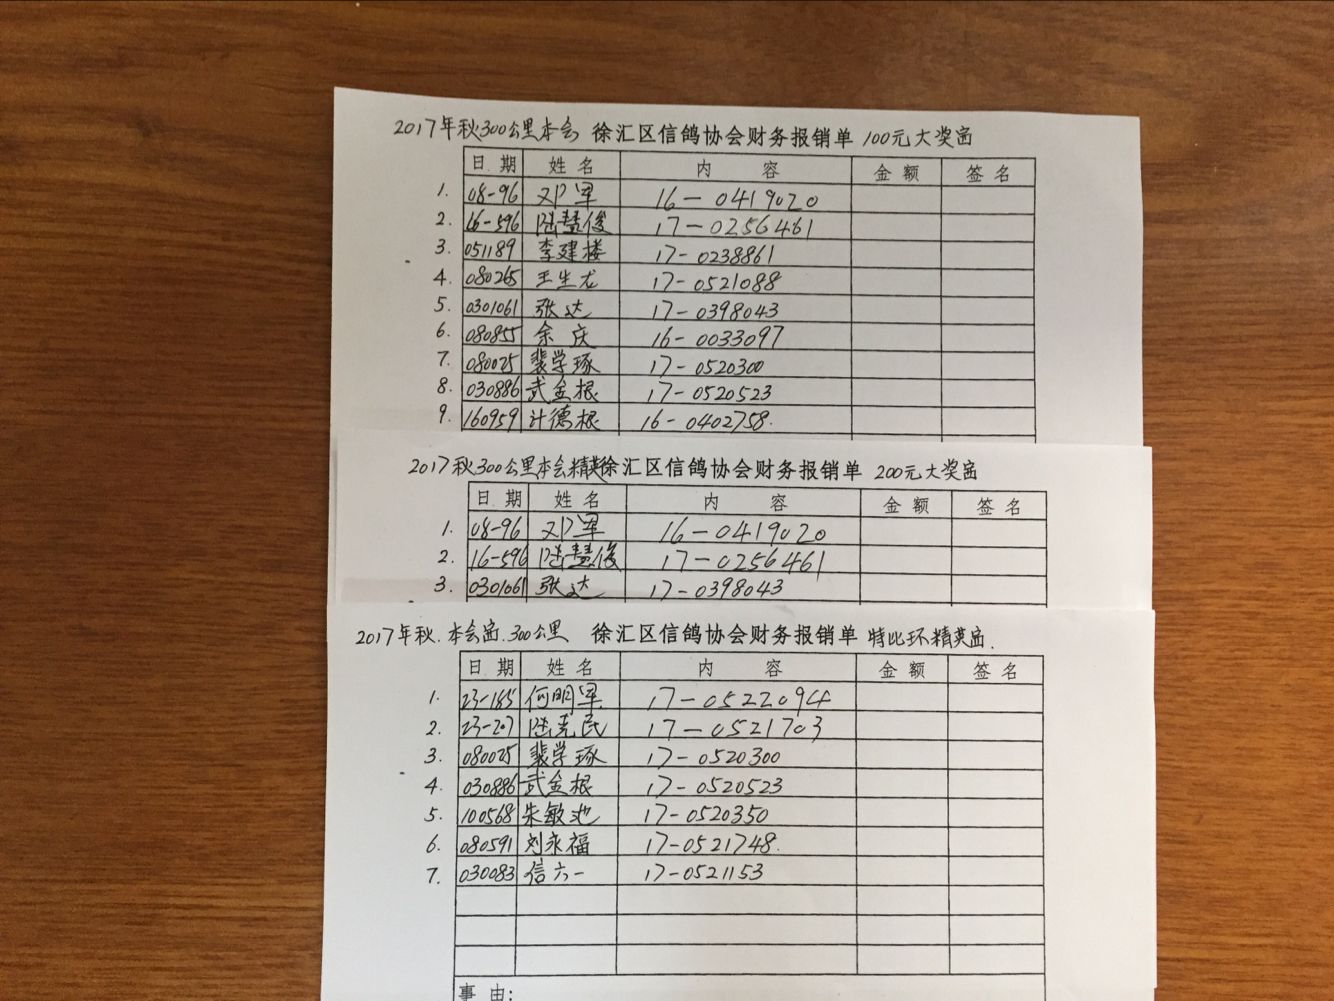 2017年秋300公里本会 徐汇区信鸽协会财务报销单 100元大奖窗
日 期 姓 名 内 容 金 额 签 名
1. 08-96 邓军 16-0419020
2. 16-596 陆慧俊 17-0256461
3. 051189 李建楼 17-0238861
4. 080265 王生龙 17-0521088
5. 0301061 张达 17-0398043
6. 080855 余庆 16-0033097
7. 080025 裴学琢 17-0520300
8. 030886 武金根 17-0520523
9. 160959 计德根 16-0402758.
2017秋300公里本会精英徐汇区信鸽协会财务报销单 200元大奖窗
日 期 姓 名 内 容 金 额 签 名
1. 08-96 邓军 16-0419020
2. 16-596 陆慧俊 17-0256461
3. 0301061 张达 17-0398043
2017年秋.本会窗.300公里 徐汇区信鸽协会财务报销单 特比环精英窗.
日 期 姓 名 内 容 金 额 签 名
1. 23-185 何明军 17-0522094
2. 23-207 陆克民 17-0521703
3. 080025 裴学琢 17-0520300
4. 030886 武金根 17-0520523
5. 100568 朱敏池 17-0520350
6. 080591 刘永福 17-0521748.
7. 030083 信六一 17-0521153
事 由: